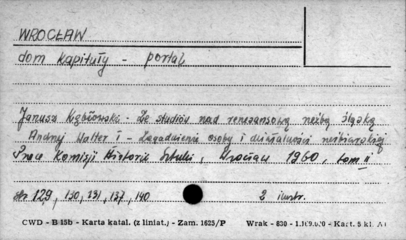 WROCŁAW
dom kapituły - portal
Janusz Kębłowski - Ze studiów nad renesansową rzeźbą śląską
Andrzej Walter I - Zagadnienie osoby i działalności rzeźbiarskiej
Prace Komisji Historii Sztuki, Wrocław 1960, tom II
str 129, 130, 131, 137, 140 2 ilustr.
CWD - B 15b - Karta katal. (z liniat.) - Zam. 1625/P Wrak - 830 - Kart. 5 kl. A1